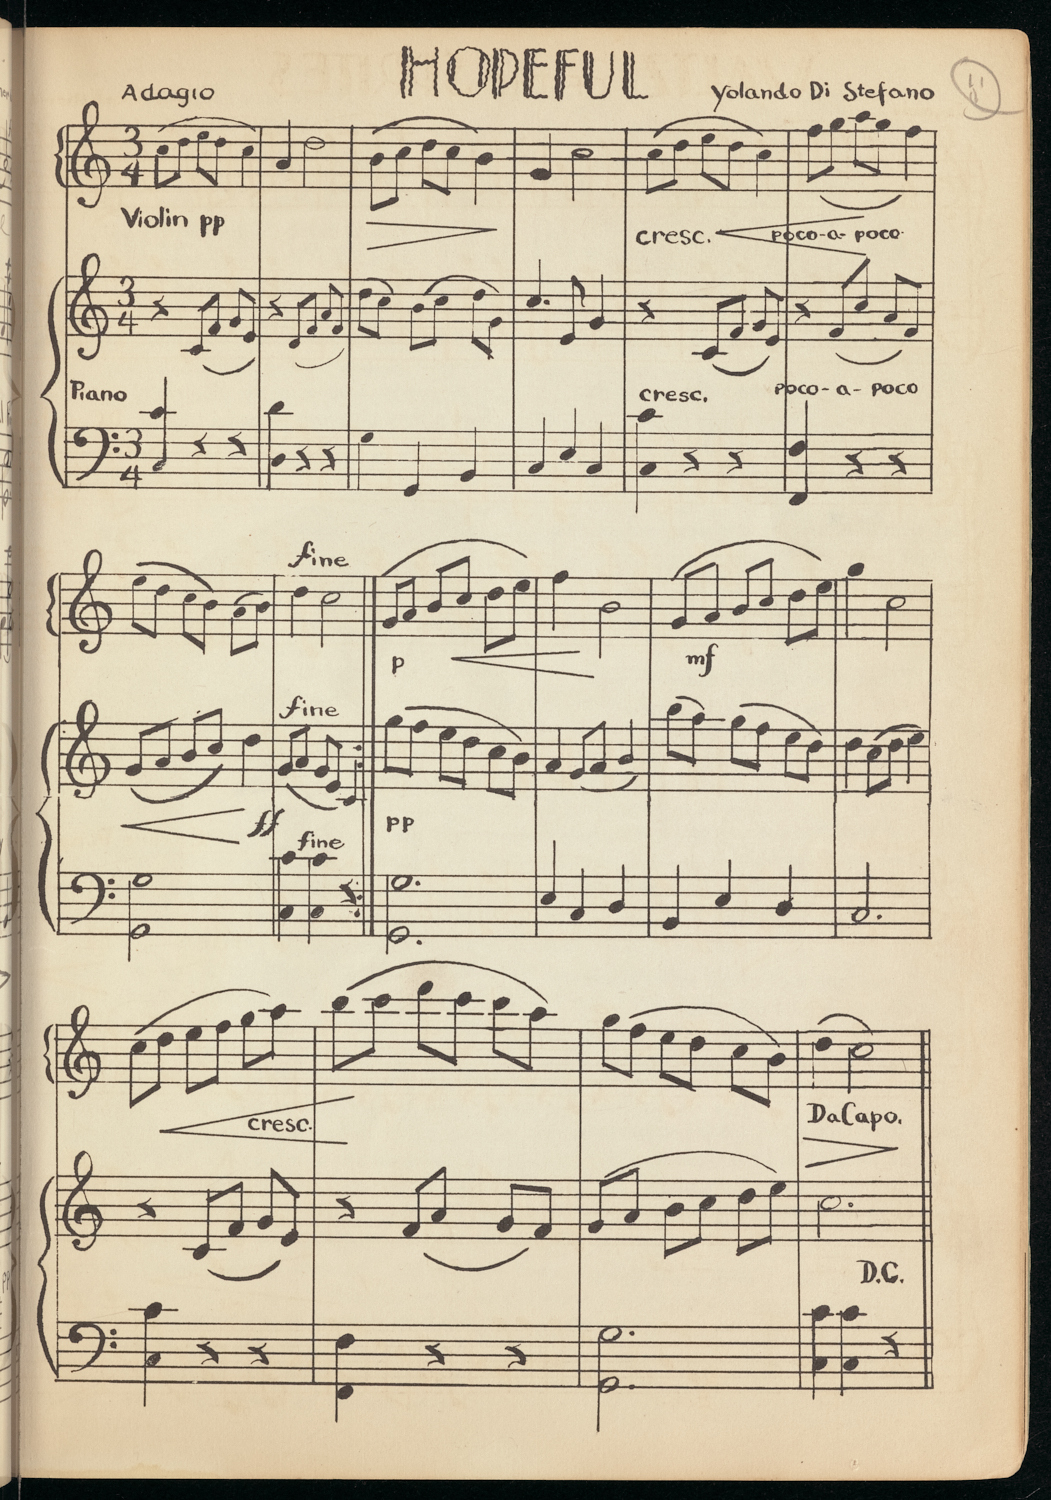 HOPEFUL
Adagio
Yolando Di Stefano
3
4
Violin pp
cresc. poco-a-poco
3
4
Piano
cresc. poco-a-poco
3
4
fine
p
mf
fine
ff
pp
fine
cresc.
DaCapo.
D.C.